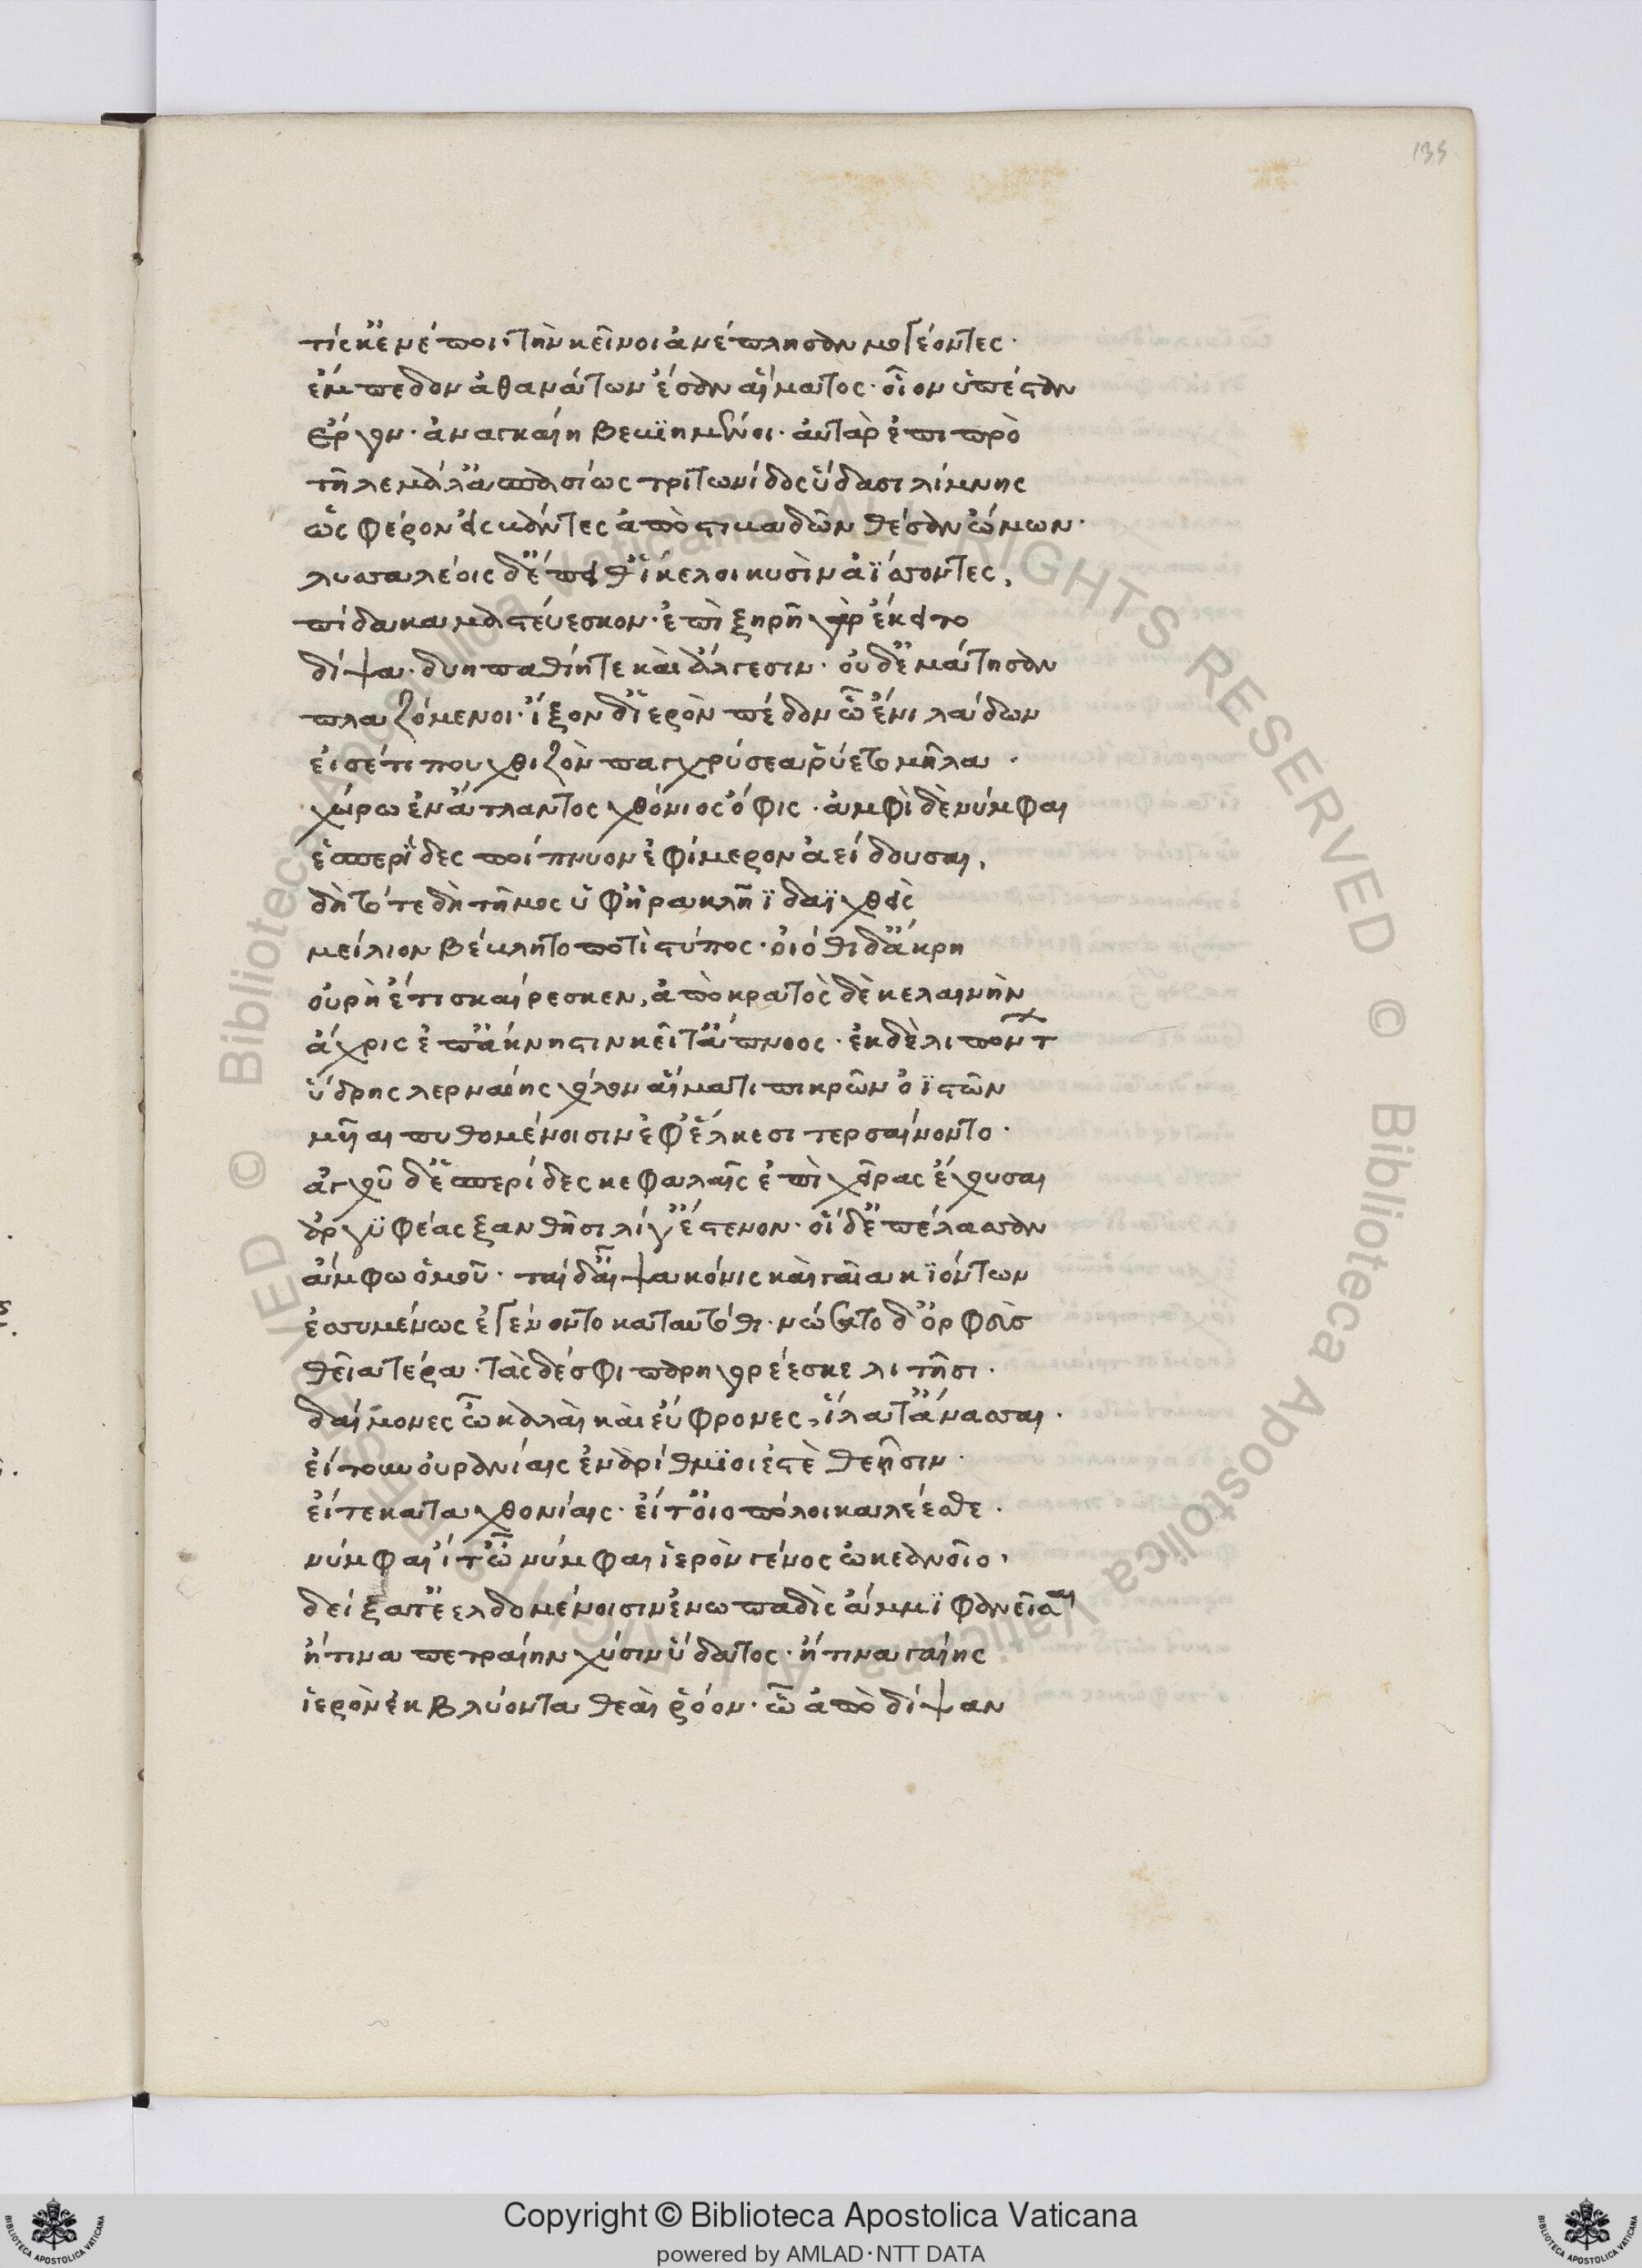 τίς κ' ἐνέποι· τὴν κεῖνοι ἀνέπλησαν μογέοντες·
ἔμπεδον ἀθανάτων ἔσαν αἵματος· οἷον ὑπέσταν
ἔργον· ἀναγκαίη βεβϊημένοι· αὐτὰρ ἐπιπρὸ
τῆλε μάλ' ἀσπασίως τριτωνίδος ὕδασι λίμνης
ὣς φέρον εἰσβάντες ἀπὸ στιβαδῶν θέσαν ὤμων·
λυσσαλέοις δ' ἔπειθ' ἴκελοι κυσὶν ἀΐσσοντες,
πίδακα μαστεύεσκον· ἐπὶ ξηρὴ γὰρ ἔκειτο
δίψα· δυηπαθίη τε καὶ ἄλγεσιν· οὐδ' ἐμάτησαν
πλαζόμενοι· ἷξον δ' ἱερὸν πέδον ὧ ἔνι λάδων
εἰσέτι που χθιζὸν παγχρύσεα ῥύετο μῆλα·
χώρω ἐν ἄτλαντος χθόνιος ὄφις· ἀμφὶ δὲ νύμφαι
ἑσπερίδες ποίπνυον ἐφίμερον ἀείδουσαι,
δὴ τότε δὴ τῆμος ὑφ' ἡρακλῆϊ δαϊχθεὶς
μείλιον βέβλητο ποτὶ στύπος· οἰόθι δ' ἄκρη
οὐρὴ ἔτι σκαίρεσκεν, ἀπὸ κρατὸς δὲ κελαινὴν
ἄχρις ἐπ' ἄκνηστιν κεῖτ' ἄπνοος· ἐκ δὲ λιπόντων
ὕδρης λερναίης χόλον αἵματι πικρῶν ὀϊστῶν
μυῖαι πυθομένοισιν ἐφ' ἕλκεσι τερσαίνοντο·
ἀγχοῦ δ' ἑσπερίδες κεφαλαῖς ἐπὶ χεῖρας ἔχουσαι
ἀργϋφέας ξανθῆσι λίγ' ἔστενον· οἱ δ' ἐπέλασσαν
ἄμφω ὁμοῦ· ταὶ δ' αἶψα κόνις καὶ γαῖα κϊόντων
ἐσσυμένως ἐγένοντο καταυτόθι· νώσατο δ' ὀρφεὺς
θεῖα τέρα· τὰς δέ σφι παρηγορέεσκε λιτῆσι·
δαίμονες ὦ καλαὶ καὶ ἐΰφρονες, ἵλατ' ἄνασσαι·
εἴτ' οὖν οὐρανίαις ἐναρίθμϊοι ἐστὲ θεῆσιν·
εἴτε καταχθονίαις· εἴτ' οἰοπόλοι καλέεσθε·
νύμφαι ἴτ' ὦ νύμφαι ἱερὸν γένος ὠκεανοῖο,
δείξατ' ἐελδομένοισιν ἐνωπαδὶς ἄμμϊ φανεῖσαι
ἤ τινα πετραίην χύσιν ὕδατος· ἤ τινα γαίης
ἱερὸν ἐκβλύοντα θεαὶ ῥόον· ὧ ἀπὸ δίψαν
135
© Biblioteca Apostolica Vaticana ALL RIGHTS RESERVED
Copyright © Biblioteca Apostolica Vaticana
powered by AMLAD·NTT DATA